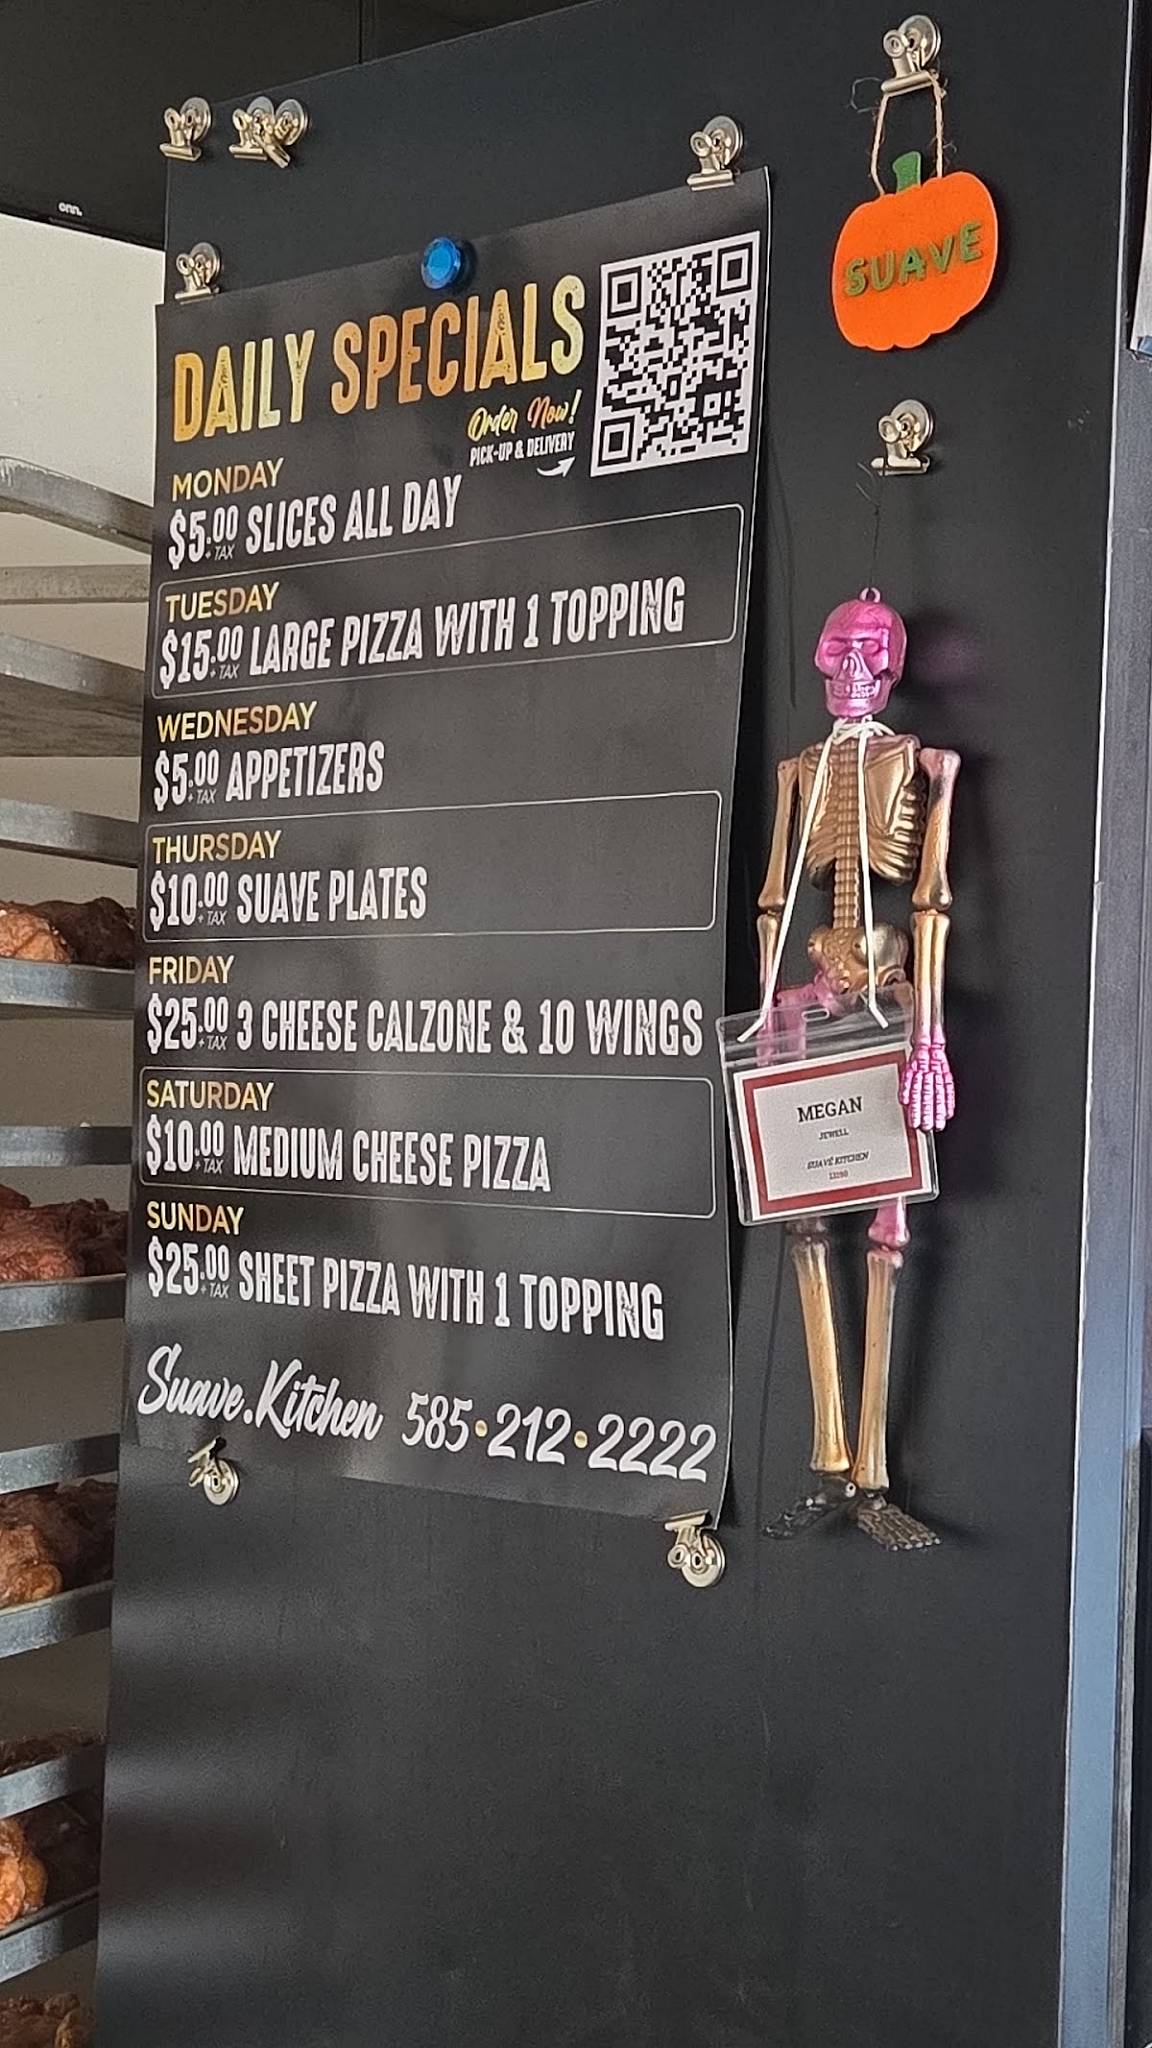 onn.
SUAVE
DAILY SPECIALS
Order Now!
PICK-UP & DELIVERY
MONDAY
$5.00 + TAX SLICES ALL DAY
TUESDAY
$15.00 + TAX LARGE PIZZA WITH 1 TOPPING
WEDNESDAY
$5.00 + TAX APPETIZERS
THURSDAY
$10.00 + TAX SUAVE PLATES
FRIDAY
$25.00 + TAX 3 CHEESE CALZONE & 10 WINGS
SATURDAY
$10.00 + TAX MEDIUM CHEESE PIZZA
SUNDAY
$25.00 + TAX SHEET PIZZA WITH 1 TOPPING
Suave.Kitchen 585•212•2222
MEGAN
JEWELL
SUAVÉ KITCHEN